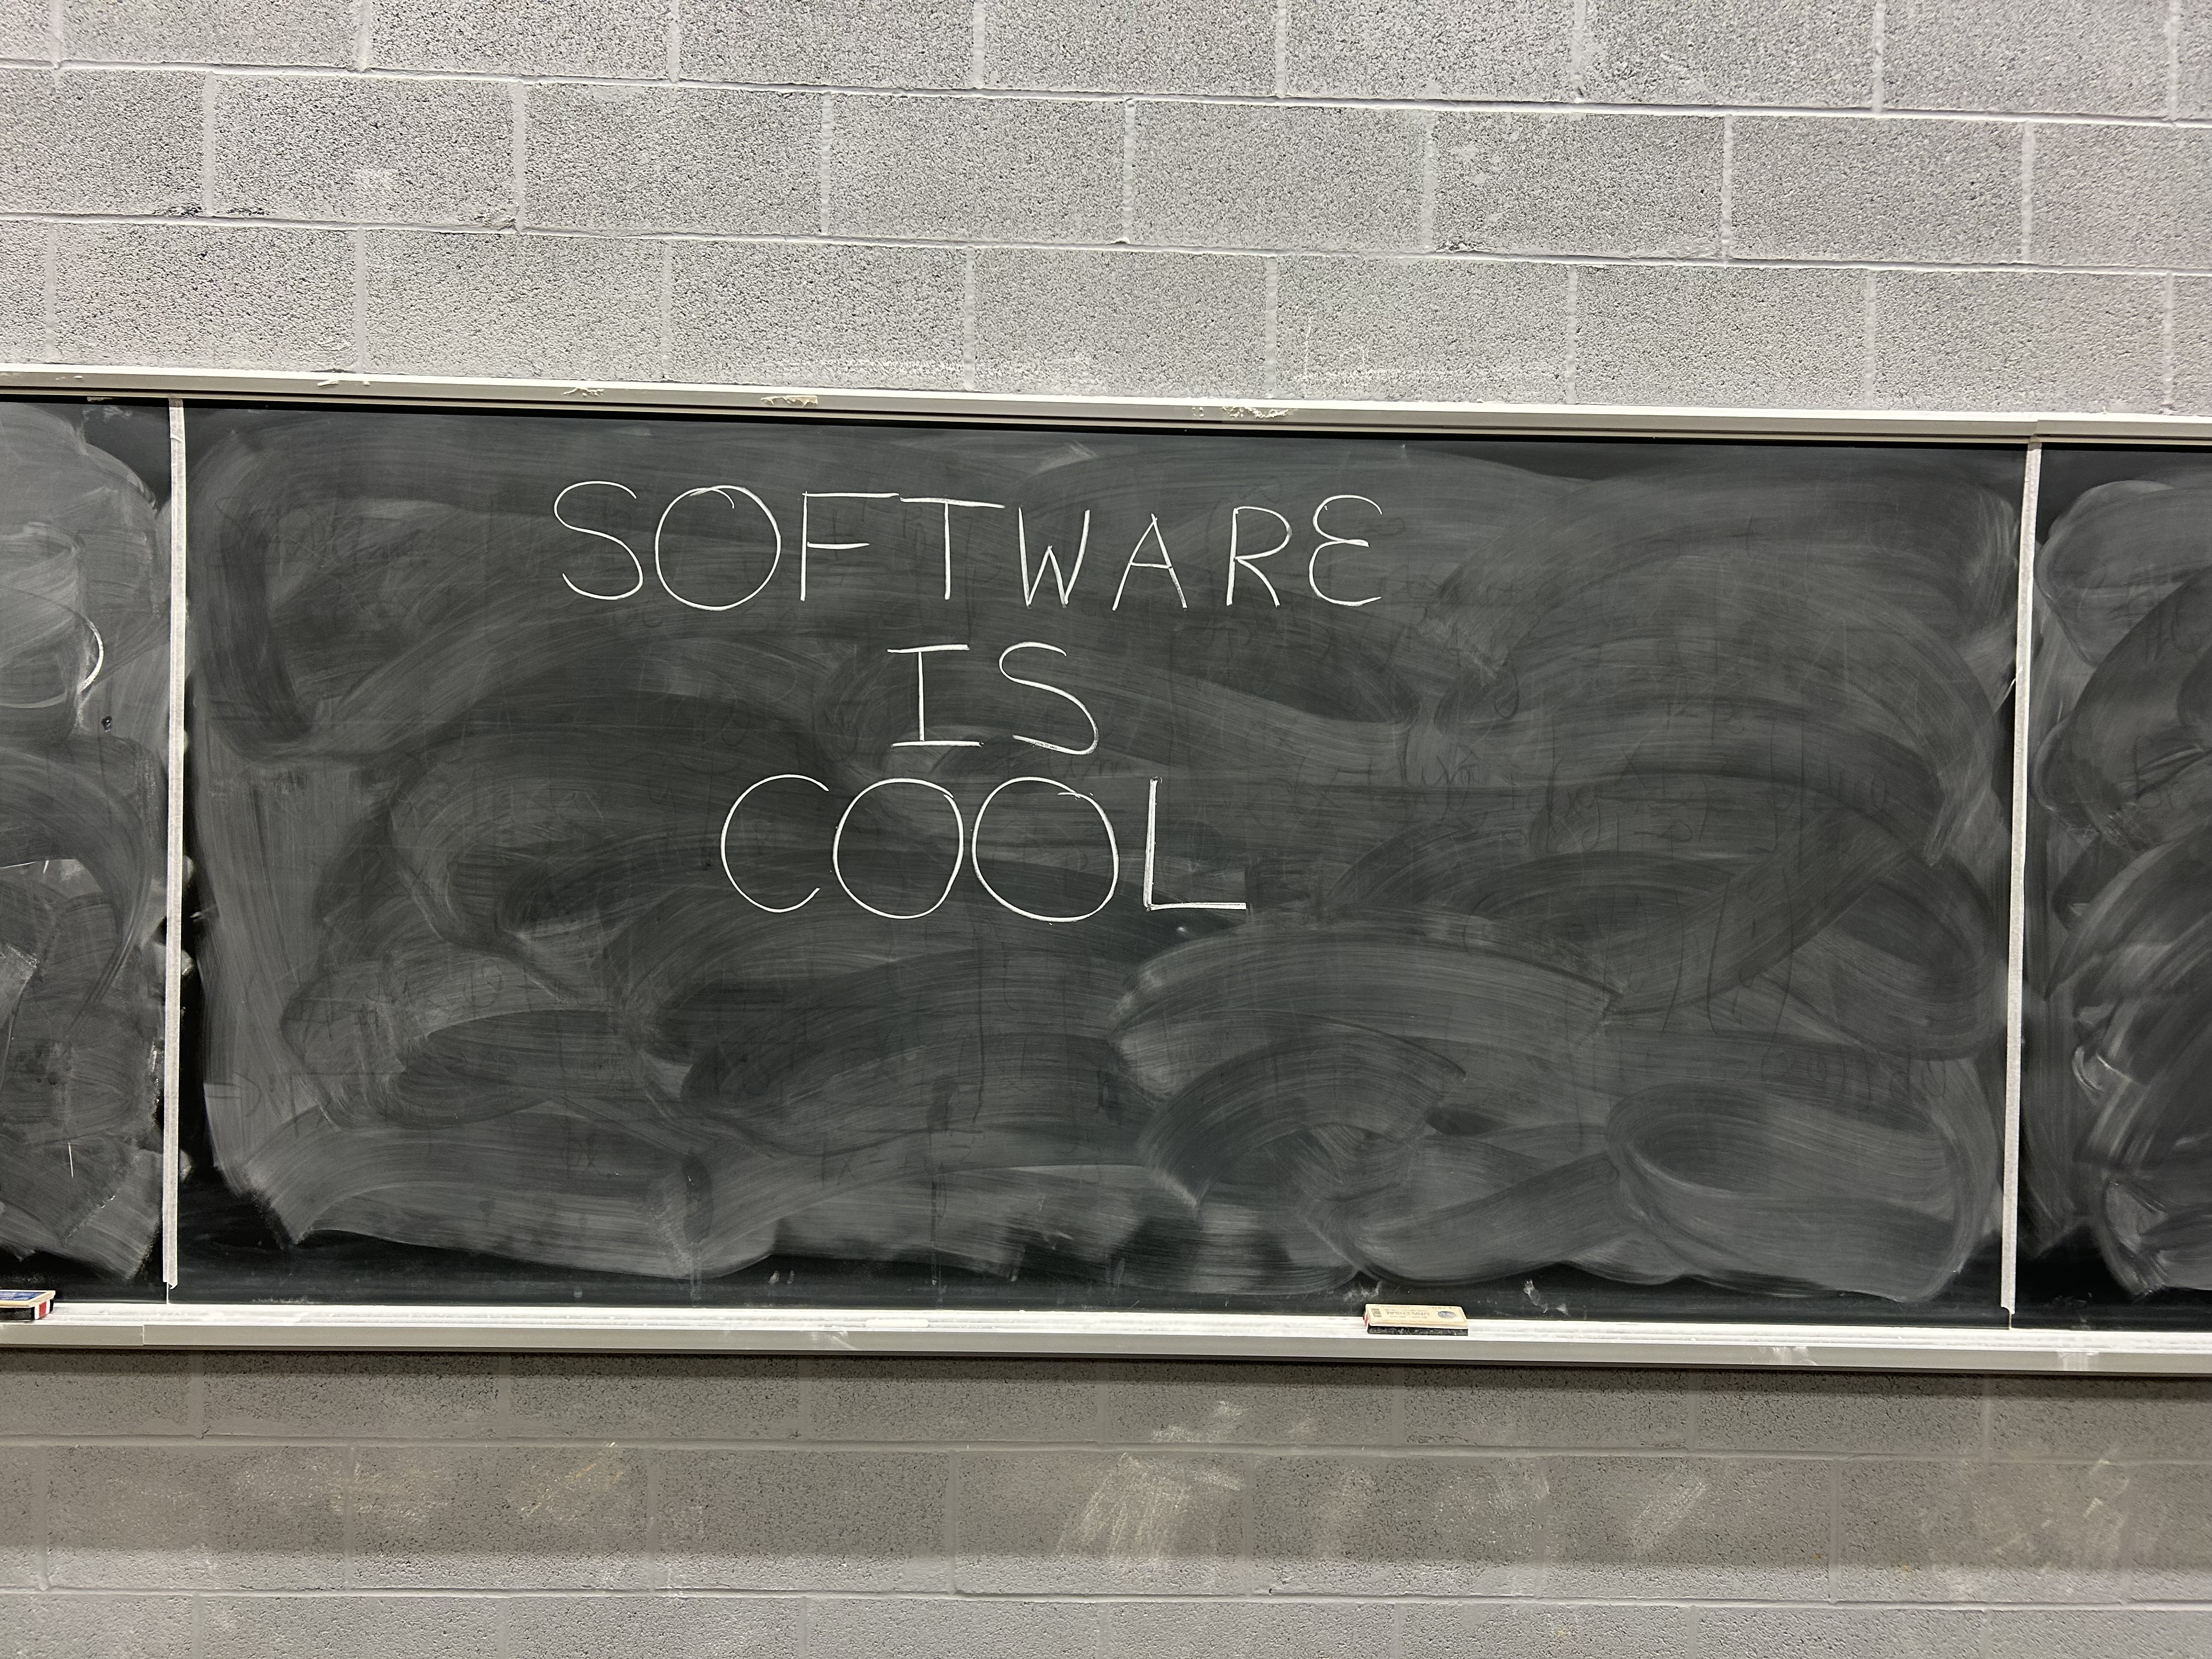 SOFTWARE
IS
COOL